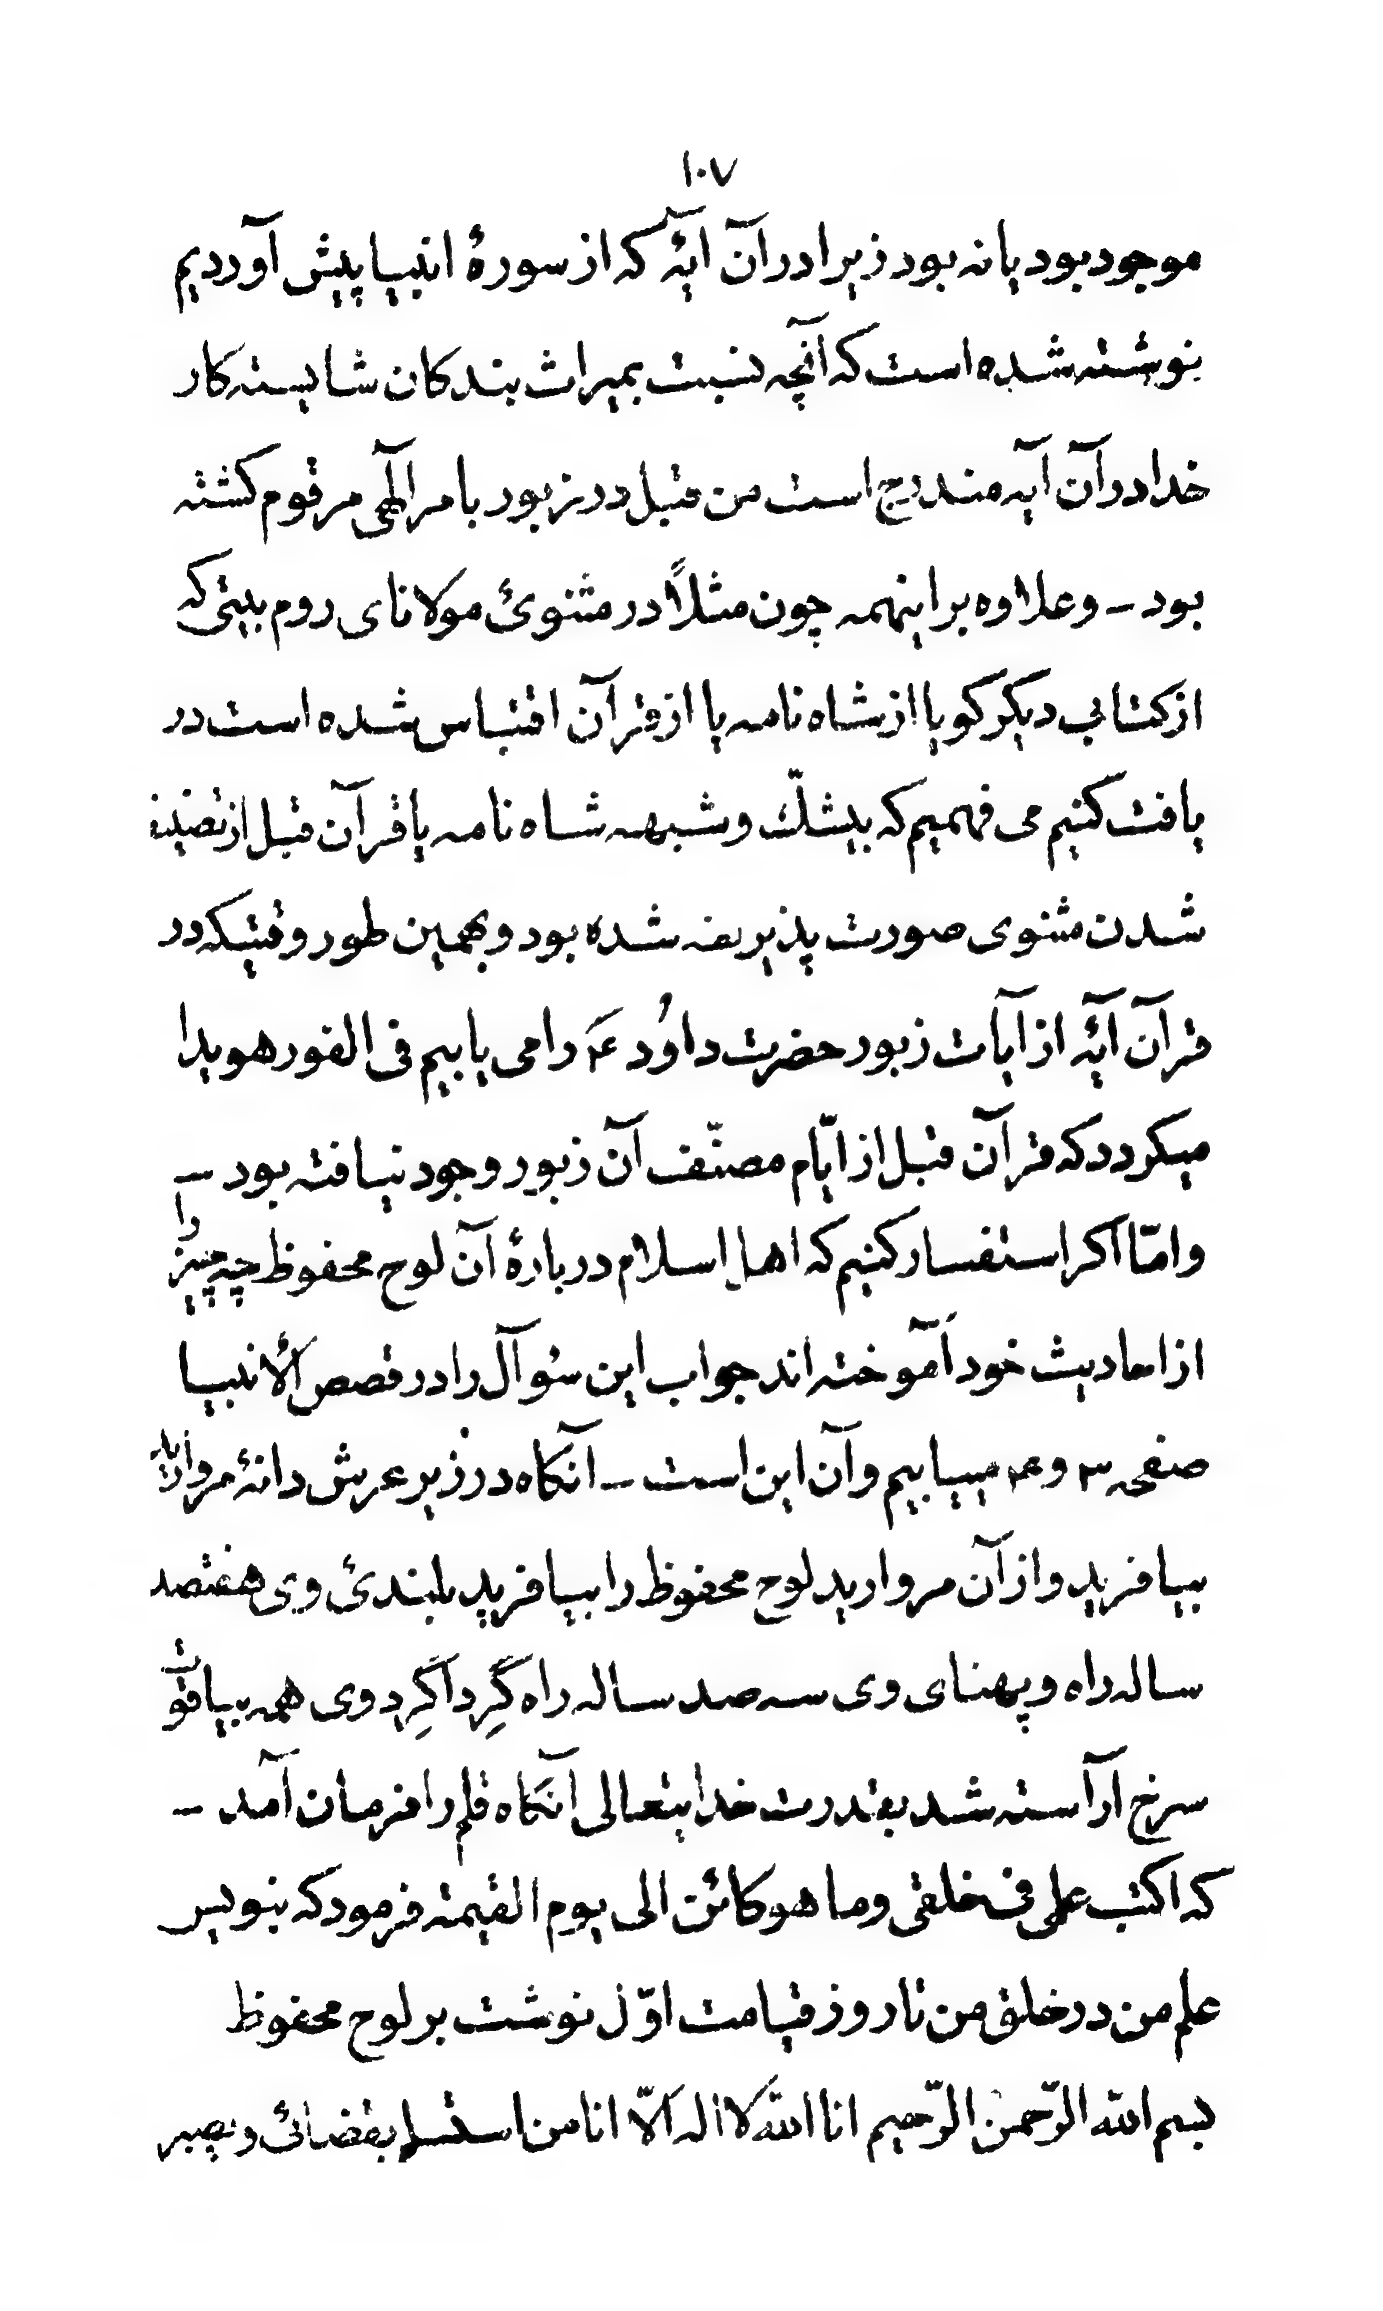 ۱۰۷
موجود بود یا نه بود زیرا در آن آیهٔ که از سورهٔ انبیا پیش آوردیم
نوشته شده است که آنچه نسبت بمیراث بندکان شایسته کار
خدا در آن آیه مندرج است من قبل در زبور بامر الٓهی مرقوم کشته
بود – و علاوه بر اینهمه چون مثلاً در مثنویٔ مولانای روم بیتی که
از کتابی دیکر کویا از شاه نامه یا از قرآن اقتباس شده است در
یافت کنیم می فهمیم که بیشکّ و شبهه شاه نامه یا قرآن قبل از تصنیف
شدن مثنوی صورت پذیرفته شده بود و بهمین طور وقتیکه در
قرآن آیهٔ از آیات زبور حضرت داوُد ع را می یابیم فی الفور هویدا
میکردد که قرآن قبل از ایّام مصنّف آن زبور وجود نیافته بود –
و امّا اکر استفسار کنیم که اهل اسلام دربارهٔ آن لوح محفوظ چه چیز را
از احادیث خود آموخته اند جواب این سُوآل را در قصص الأنبیا
صفحه ۳ و ۴ میبیابیم و آن این است – آنکاه در زیر عرش دانهٔ مروارید
بیافرید و از آن مروارید لوح محفوظ را بیافرید بلندیٔ وی هفتصد
ساله راه و پهنای وی سه صد ساله راه گِرداگِرد وی همه بیاقوت
سرخ آراسته شد بقدرت خدایتعالی آنکاه قلم را فرمان آمد –
که اکتب علمی فی خلقی و ما هو کائن الی یوم القیٰمة فرمود که بنویس
علم من در خلق من تا روز قیامت اوّل نوشت بر لوح محفوظ
بسم الله الرّحمن الرّحیم انا الله لا اله الّا انا من استسلم بقضائی و یصبر